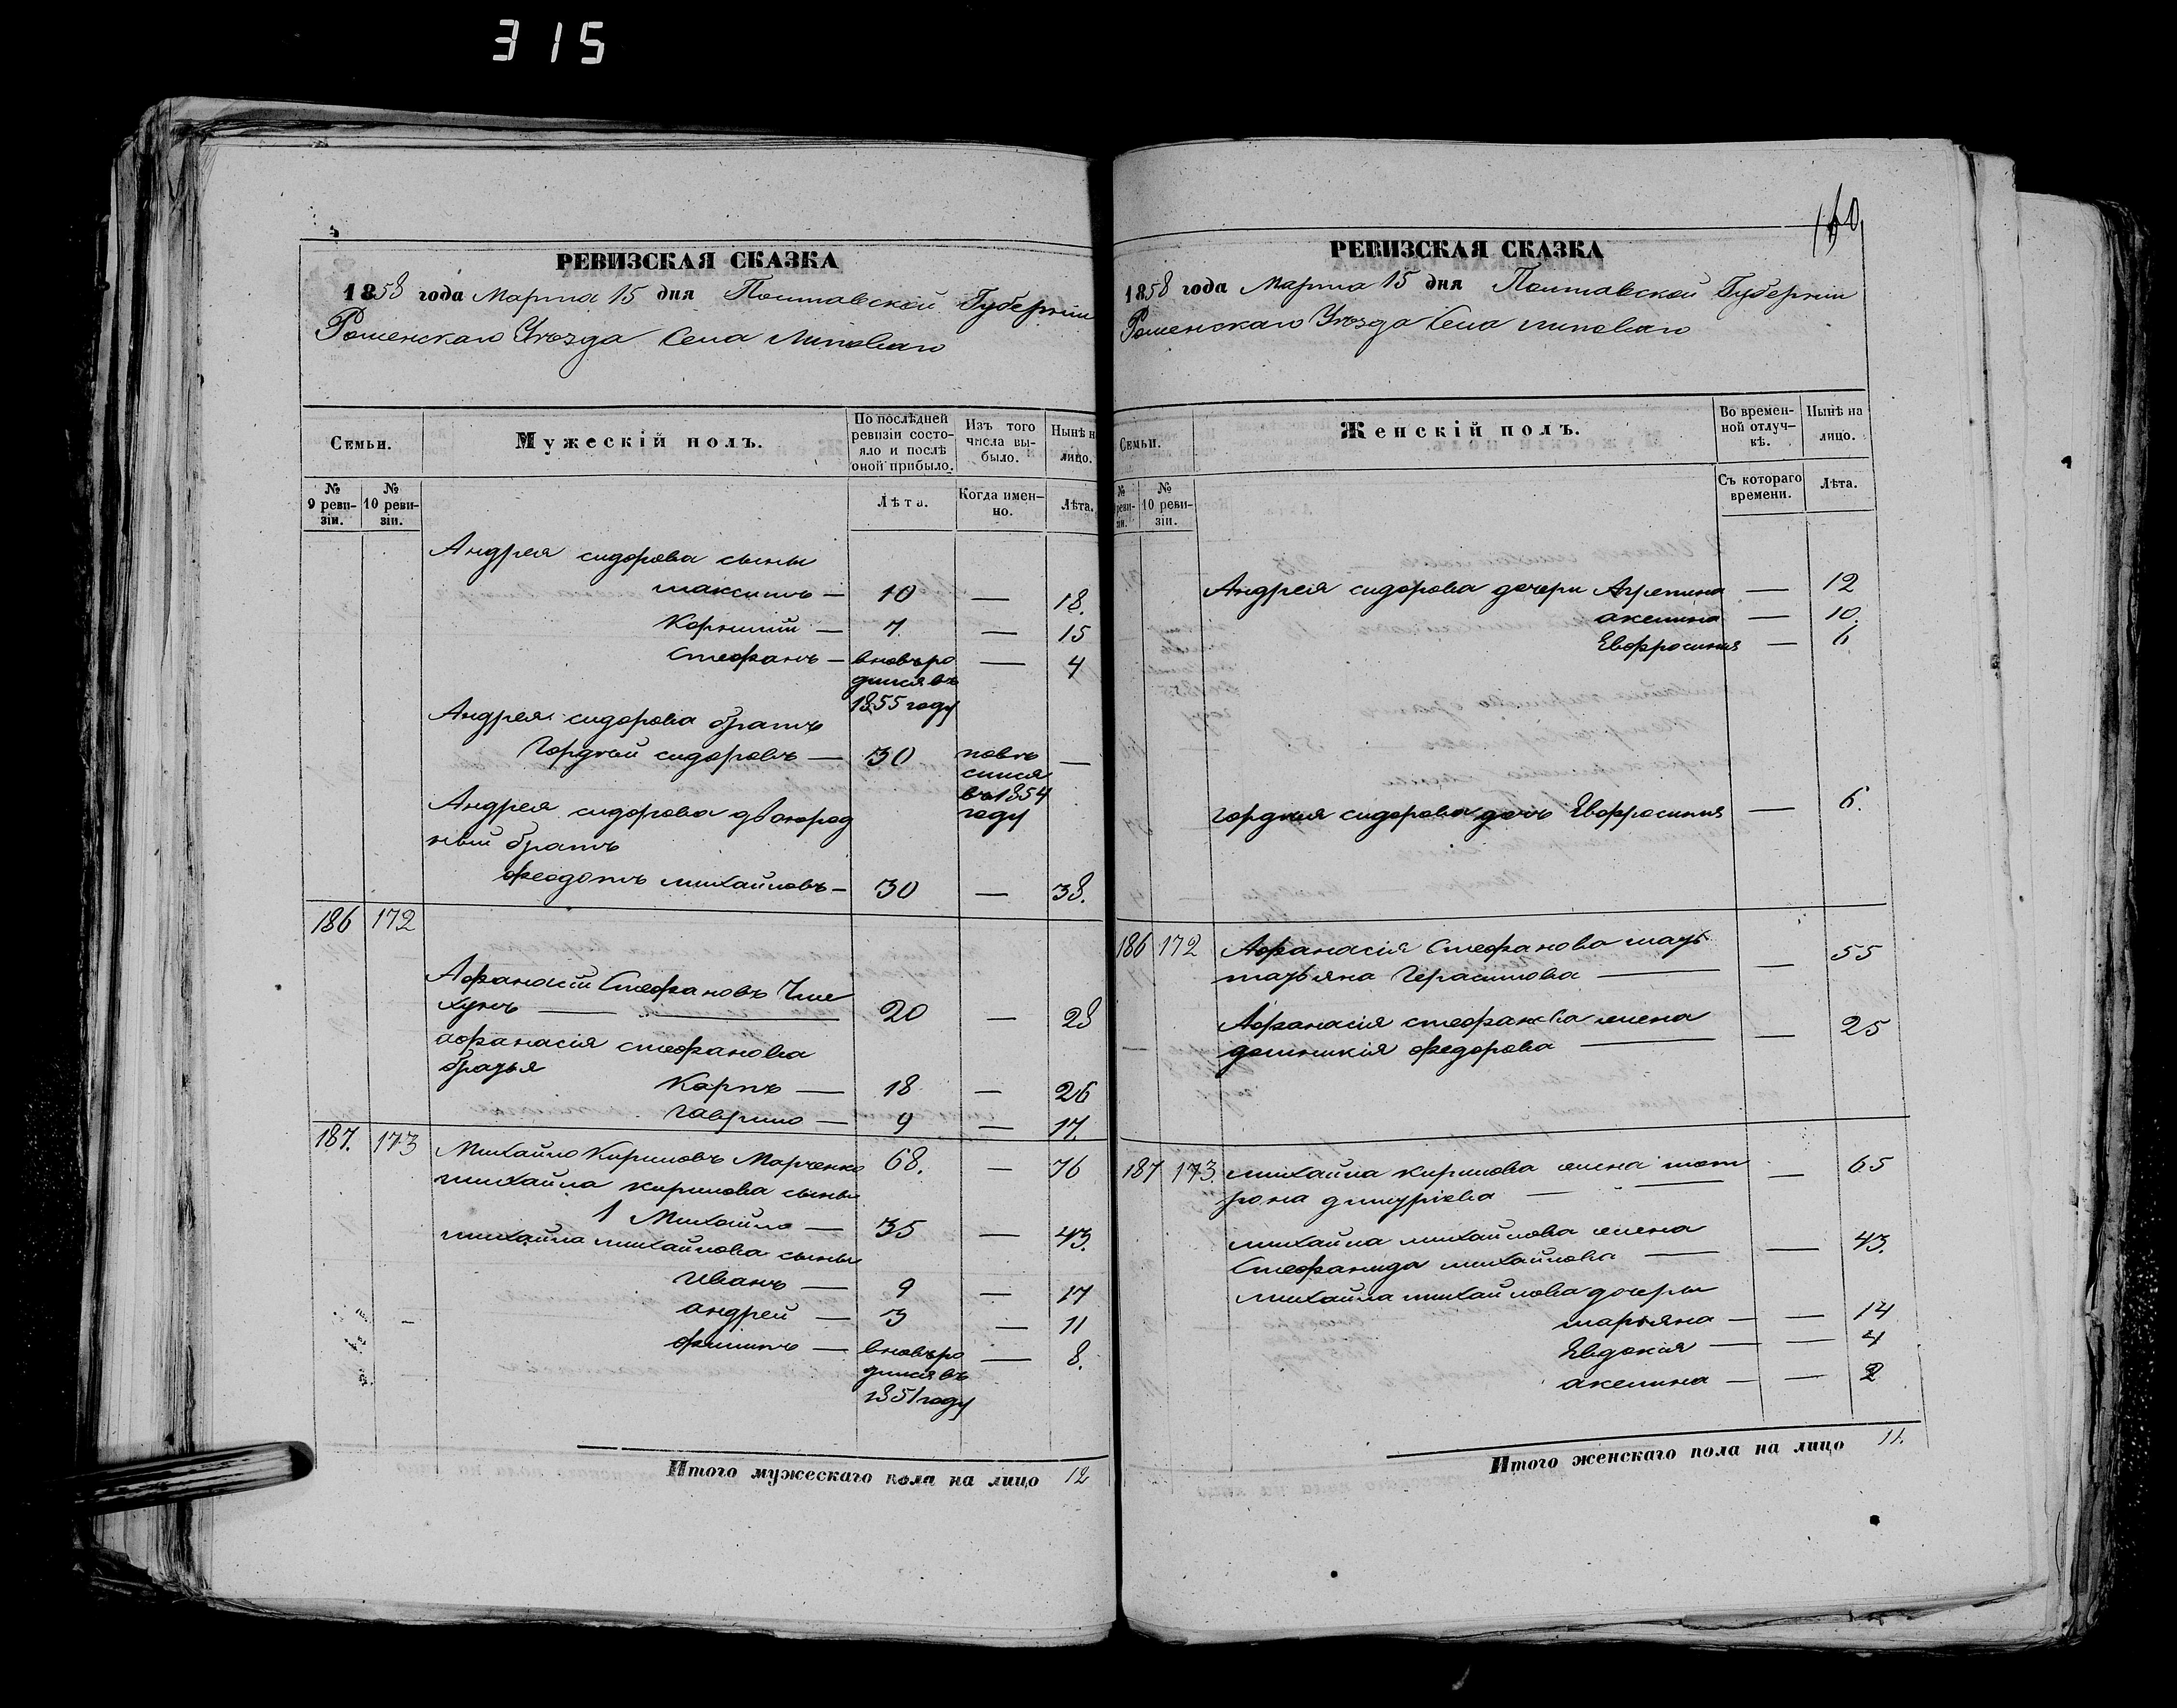 315
РЕВИЗСКАЯ СКАЗКА
1858 года Марта 15 дня Полтавской Губерніи
Роменскаго Уѣзда Села Липоваго
Семьи.
Мужескій полъ.
По послѣдней ревизіи состояло и послѣ оной прибыло.
Изъ того числа выбыло.
Нынѣ на лицо.
№ 9 ревизіи.
№ 10 ревизіи.
Лѣта.
Когда именно.
Лѣта.
Андрея сидорова сыны
максимъ — 10 — 18.
Корнилій — 7 — 15
Стефанъ — вновь ро — 4
дился въ
1855 году
Андрея сидорова братъ
Гордѣй сидоровъ — 30 повѣ —
сился
въ 1854
году
Андрея сидорова двоюрод
ный братъ
феодотъ михайловъ — 30 — 38.
186 172
Афанасій Стефановъ
хунъ — 20 — 28
афанасія стефанова
братья
Карпъ — 18 — 26
гаврило — 9 — 17.
187. 173 Михайло Кириловъ Марченко 68. — 76
михайла кирилова сыны
1 Михайло — 35 — 43.
михайла михайлова сыны
Иванъ — 9 — 17
андрей — 3 — 11
филипъ — вновь ро — 8.
дился въ
1851 году
Итого мужескаго пола на лицо 12
РЕВИЗСКАЯ СКАЗКА
1858 года Марта 15 дня Полтавской Губерніи
Роменскаго Уѣзда Села липоваго
Семьи.
Женскій полъ.
Во временной отлучкѣ.
Нынѣ на лицо.
№ реви- зіи.
№ 10 ревизіи.
Съ котораго времени.
Лѣта.
Андрея сидорова дочери Агрепина — 12
акелина — 10.
Евфросинія — 6
гордия сидорова дочь Евфросинія — 6.
186 172 Афанасія Стефанова мать
татьяна Герасимова — — 55
Афанасія стефанова жена
домникія федорова — — 25
187 173. михайла кирилова жена мот — 65
рона дмитріева —
михайла михайлова жена
Стефанида михайлова — — 43.
михайла михайлова дочери
марьяна — — 14
Евдокія — — 4
акелина — — 2
Итого женскаго пола на лицо 11.